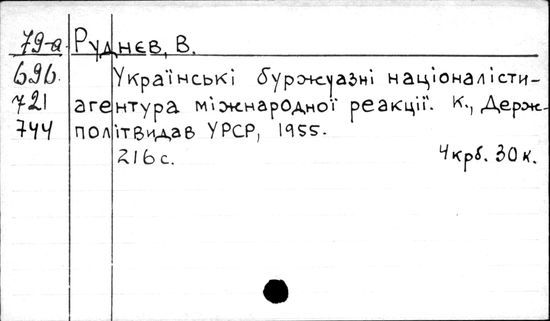 79-а Руднєв, В.
696. Українські буржуазні націоналісти-
721 агентура міжнародної реакції. К., Держ-
744 політвидав УРСР, 1955.
216 с. 4 крб. 30 к.